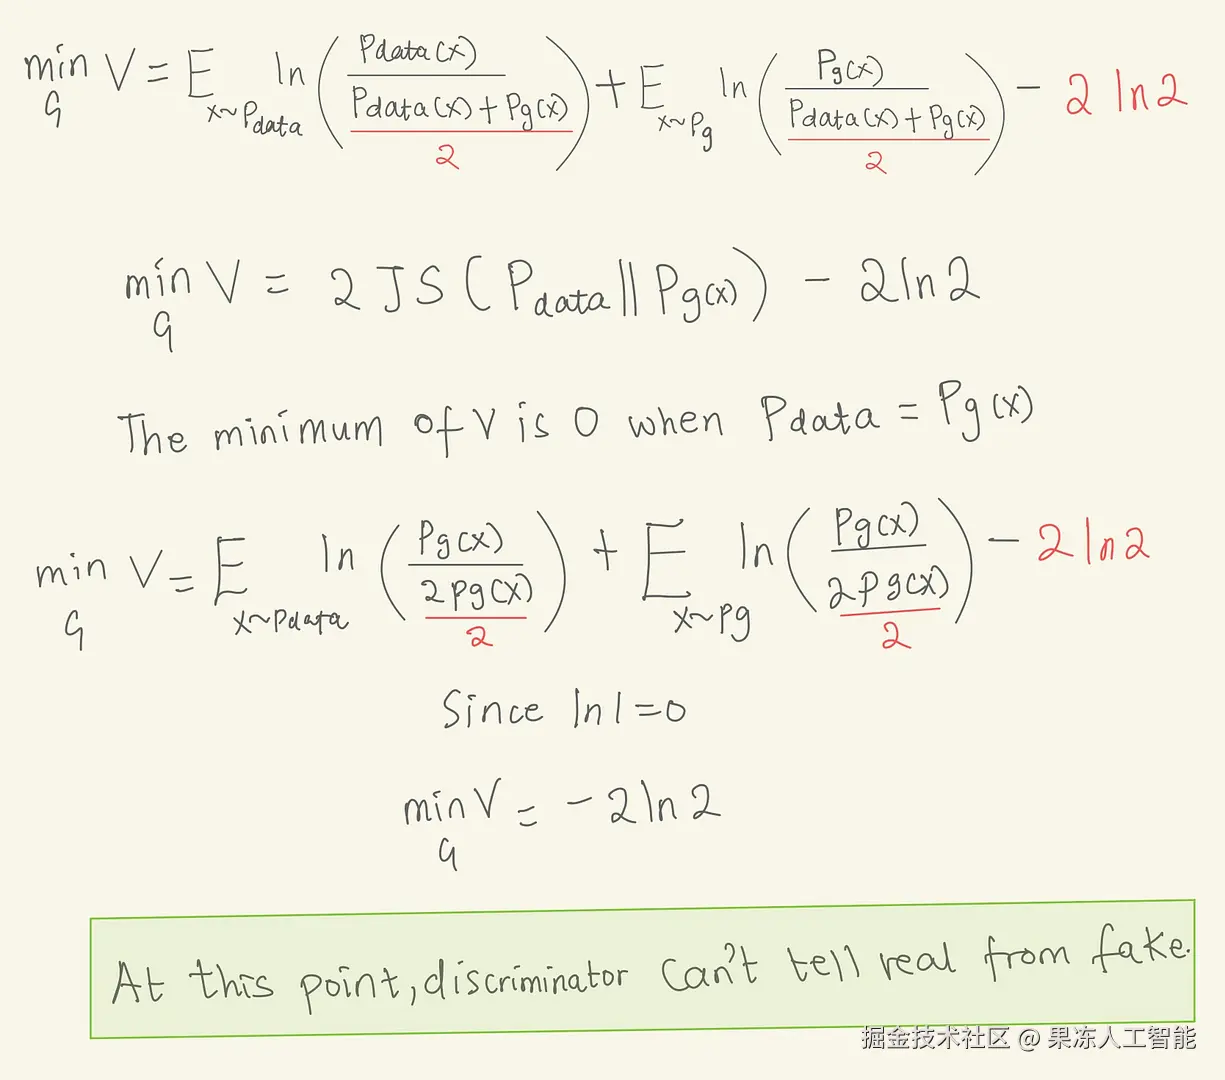 min_G V = E_{x~Pdata} ln( Pdata(x) / ((Pdata(x) + Pg(x)) / 2) ) + E_{x~Pg} ln( Pg(x) / ((Pdata(x) + Pg(x)) / 2) ) - 2 ln2
min_G V = 2 JS ( Pdata || Pg(x) ) - 2ln2
The minimum of V is 0 when Pdata = Pg(x)
min_G V = E_{x~Pdata} ln( Pg(x) / (2Pg(x) / 2) ) + E_{x~Pg} ln( Pg(x) / (2Pg(x) / 2) ) - 2ln2
Since ln1=0
min_G V = -2ln2
At this point, discriminator can't tell real from fake.
掘金技术社区 @ 果冻人工智能